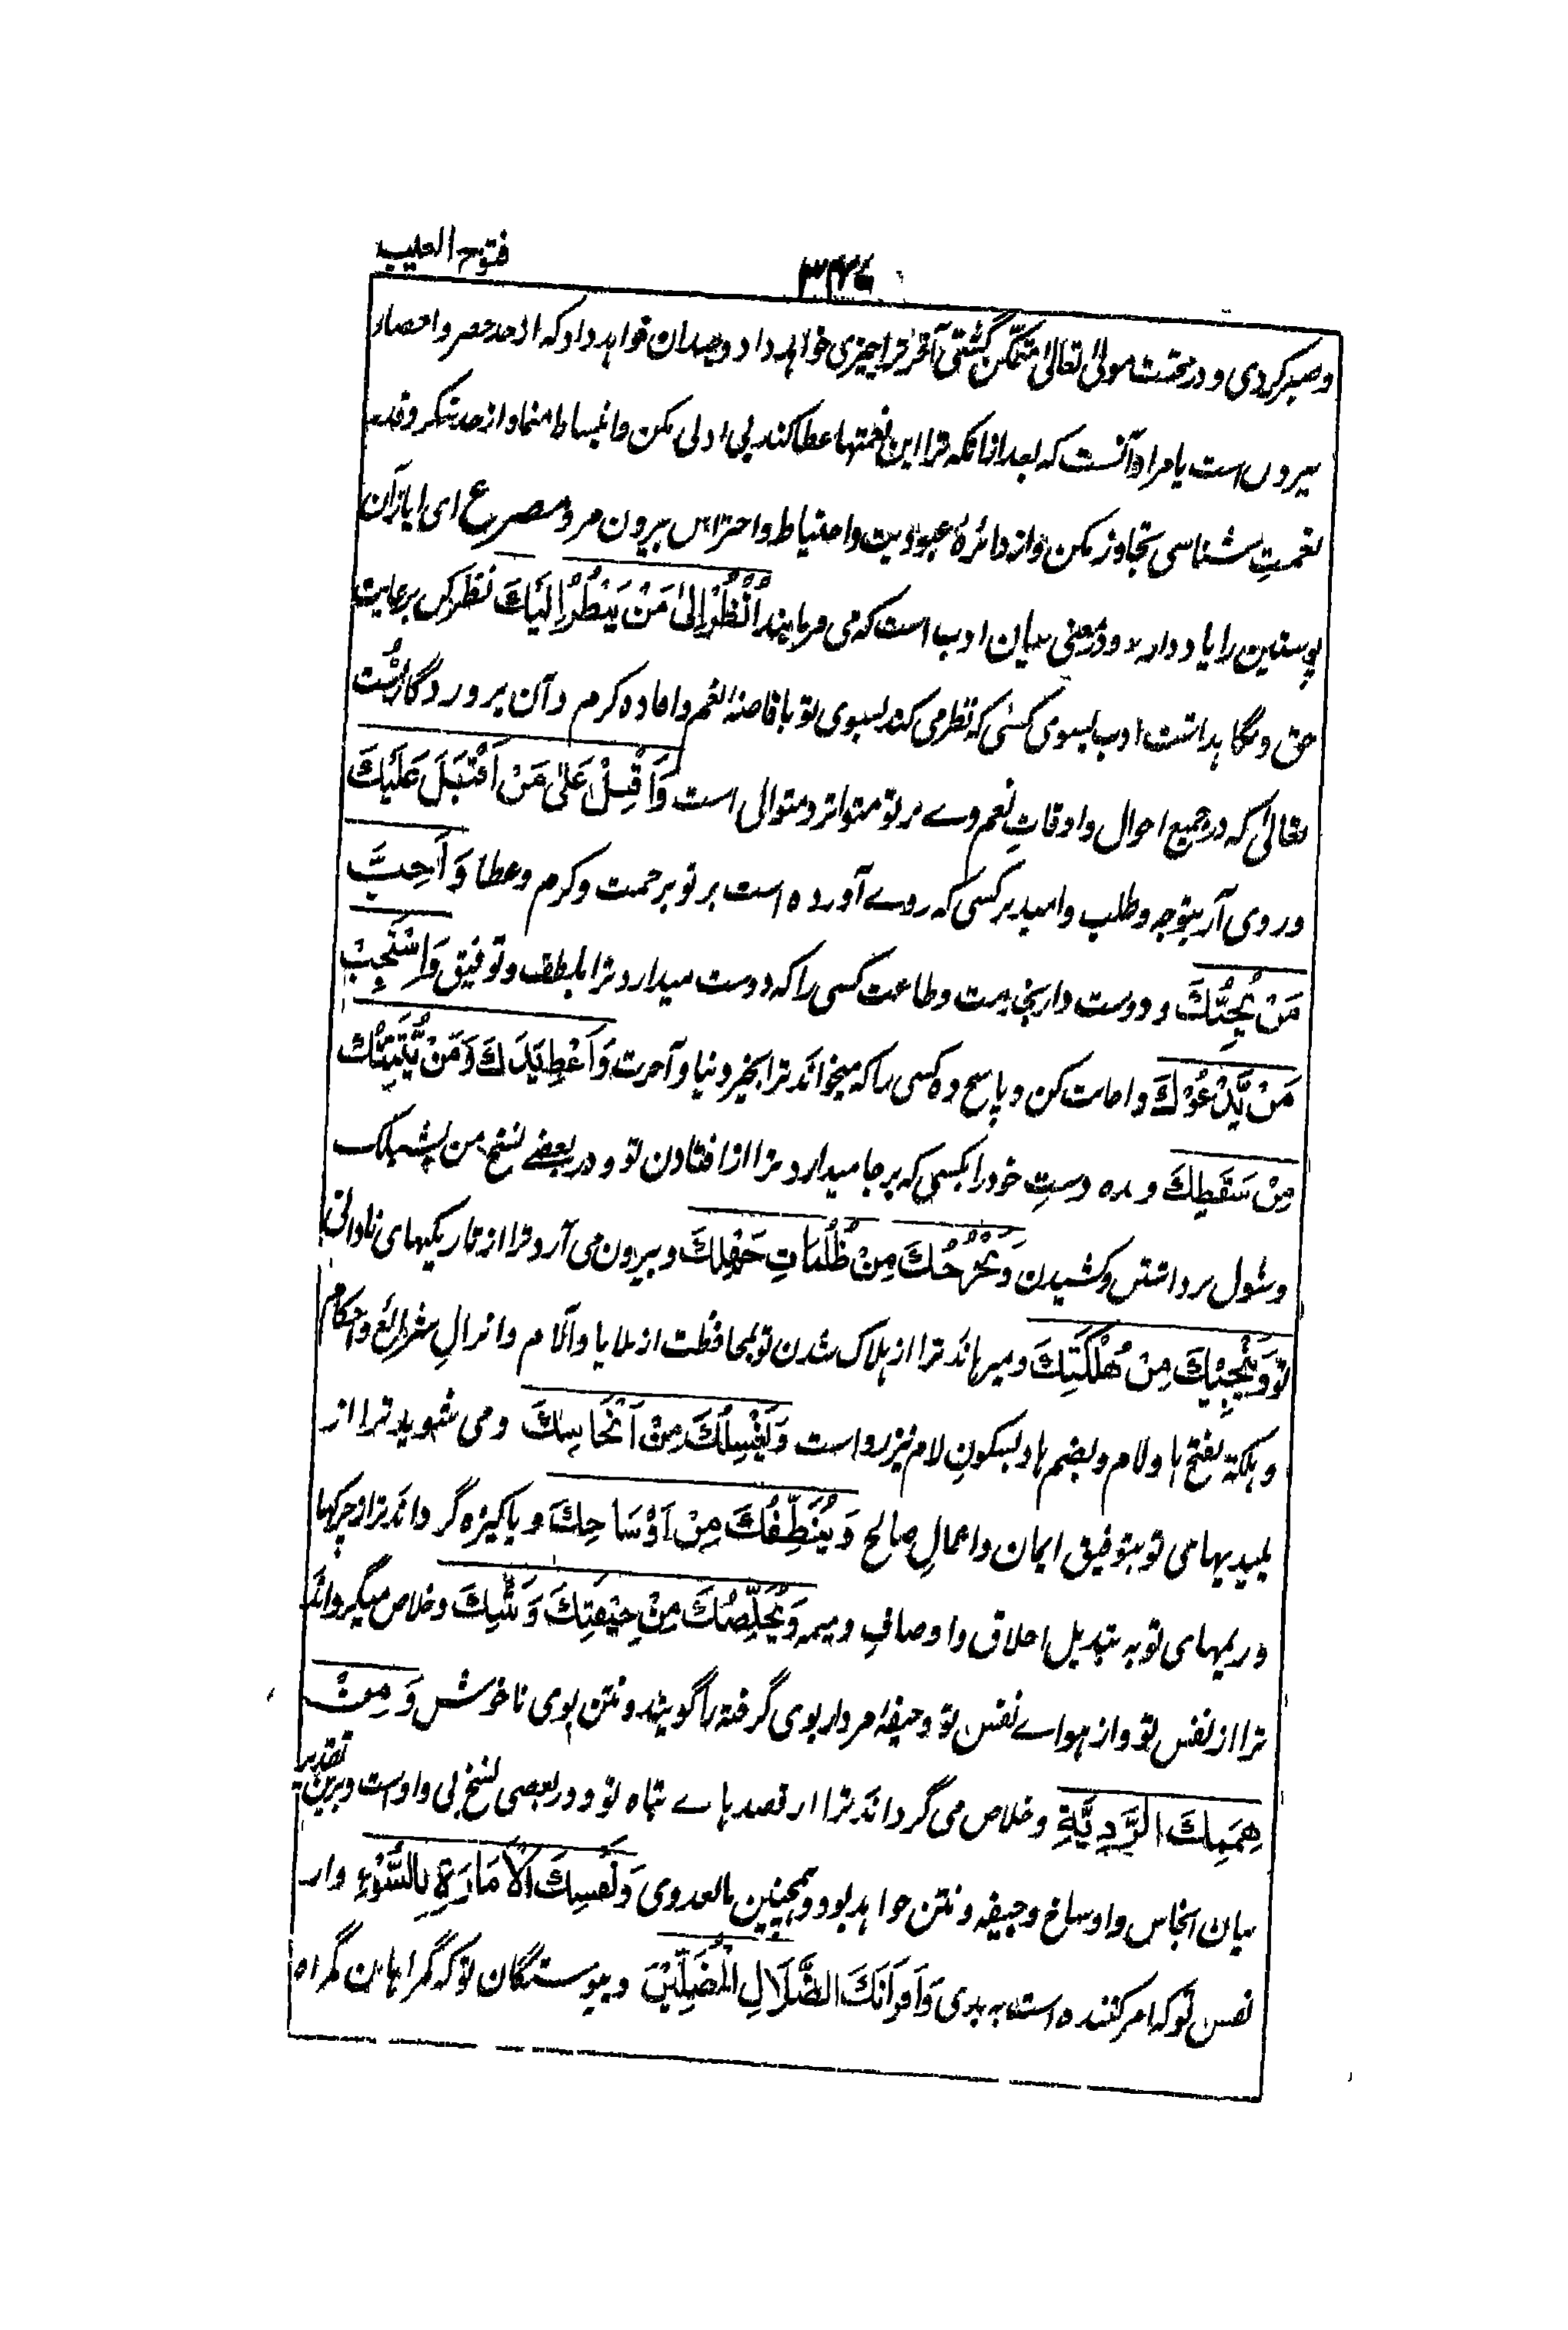 فتوح الغیب
۳۴۷
وصبر کردی و در محبت مولیٰ تعالیٰ متمکن گشتی آخر ترا چیزی خواهد داد و چندان خواهد داد که از حد حصر و احصار
بیرون است یا مراد آنست که بعد از انکه ترا این نعمتها عطا کند بی ادبی مکن و انبساط منما و از حد شکر و قدر
نعمت شناسی تجاوز مکن و از دائرهٔ عبودیت و احتیاط و احتراس بیرون مرو مصرع ای ایاز آن
پوستین را یاد دار؞ و در معنی بیان ادب است که می فرمایند اُنْظُرْ اِلیٰ مَنْ یَنْظُرُ اِلَیْكَ نظر کن برعایت
حق و نگاهداشت ادب بسوی کسی که نظر می کند بسوی تو بافاضهٔ نعم و افادهٔ کرم و آن پروردگار تست
تعالیٰ که در جمیع احوال و اوقات نعم وے بر تو متواتر و متوالی است وَاَقْبِلْ عَلیٰ مَنْ اَقْبَلَ عَلَیْكَ
و روی آر بتوجه و طلب و امید بر کسی که روے آورده است بر تو برحمت و کرم و عطا وَ اَحِبَّ
مَنْ یُحِبُّكَ و دوست دار بخدمت و طاعت کسی را که دوست میدارد ترا بلطف و توفیق وَاسْتَجِبْ
مَنْ یَّدْعُوْكَ و اجابت کن و پاسخ ده کسی را که میخواند ترا بخیر دنیا و آخرت وَاَعْطِ یَدَكَ مَنْ یُّثَبِّتُكَ
مِنْ سَقَطِكَ و بده دست خود را بکسی که بر جا میدارد ترا از افتادن تو و در بعضے نسخ من یشیلك
و شول برداشتن و کشیدن وَیُخْرِجُكَ مِنْ ظُلُمَاتِ جَهْلِكَ و بیرون می آرد ترا از تاریکیهای نادانی
تو وَیُنْجِیْكَ مِنْ هَلَكَتِكَ و میرهاند ترا از هلاک شدن تو بمحافظت از بلایا و آلام و انزال شرائع و احکام
و هلکة بفتح ها و لام و بضم ها و بسکون لام نیز رواست وَیَغْسِلُكَ مِنْ اَنْجَاسِكَ و می شوید ترا از
پلیدیهای تو بتوفیق ایمان و اعمال صالح وَ یُنَظِّفُكَ مِنْ اَوْسَاخِكَ و پاکیزه گرداند ترا از چرکها
و ریمهای تو به تبدیل اخلاق و اوصاف ذمیمه وَیُخَلِّصُكَ مِنْ جِیْفَتِكَ وَ نَتْنِكَ و خلاص میگرداند
ترا از نفس تو و از هواے نفس تو و جیفهٔ مردار بوی گرفته را گویند و نتن بوی ناخوش وَ مِنْ
هِمَمِكَ الرَّدِیَّةِ و خلاص می گرداند ترا از قصد هاے تباه تو و در بعضی نسخ بی واوست و برین تقدیر
بیان انجاس و اوساخ و جیفه و نتن خواهد بود و همچنین مابعد وی وَنَفْسِكَ الْاَمَّارَةِ بِالسُّوْءِ و از
نفس تو که امر کننده است به بدی وَاَقْرَانِكَ الضُّلَّالِ الْمُضِلِّیْنَ و پیوستگان تو که گمراهان گمراه